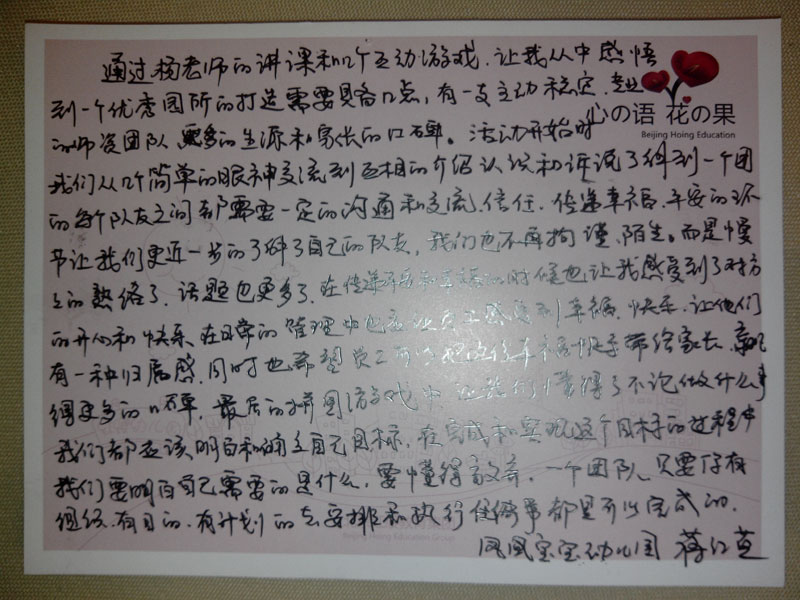 通过杨老师的讲课和几个互动游戏，让我从中感悟
到一个优秀园所的打造需要具备几点，有一支主动 稳定、专业
的师资团队 更多的生源和家长的口碑。活动开始时
心の语 花の果
Beijing Hoing Education
我们从几个简单的眼神交流到互相的介绍认识和诉说了解到一个团
的每个队友之间都需要一定的沟通和交流、信任、传递幸福、平安的环
节让我们更近一步的了解了自己的队友，我们也不再拘谨、陌生。而是慢
的熟络了，话题也更多了，在传递平安和幸福的时候也让我感受到了对方
的开心和快乐 在日常的管理中也应让员工感受到幸福、快乐，让他们
有一种归属感，同时也希望员工可以把这份幸福快乐带给家长，赢
得更多的口碑，最后的拼图游戏中 让我们懂得了不论做什么事
我们都应该明白和确立自己目标，在完成和实现这个目标的过程中
我们要明白自己需要的是什么，要懂得 一个团队，只要你有
组织、有目的、有计划的去安排和执行 任何事都是可以完成的。
Beijing Hoing Education Group
凤凰宝宝幼儿园 蒋红芝